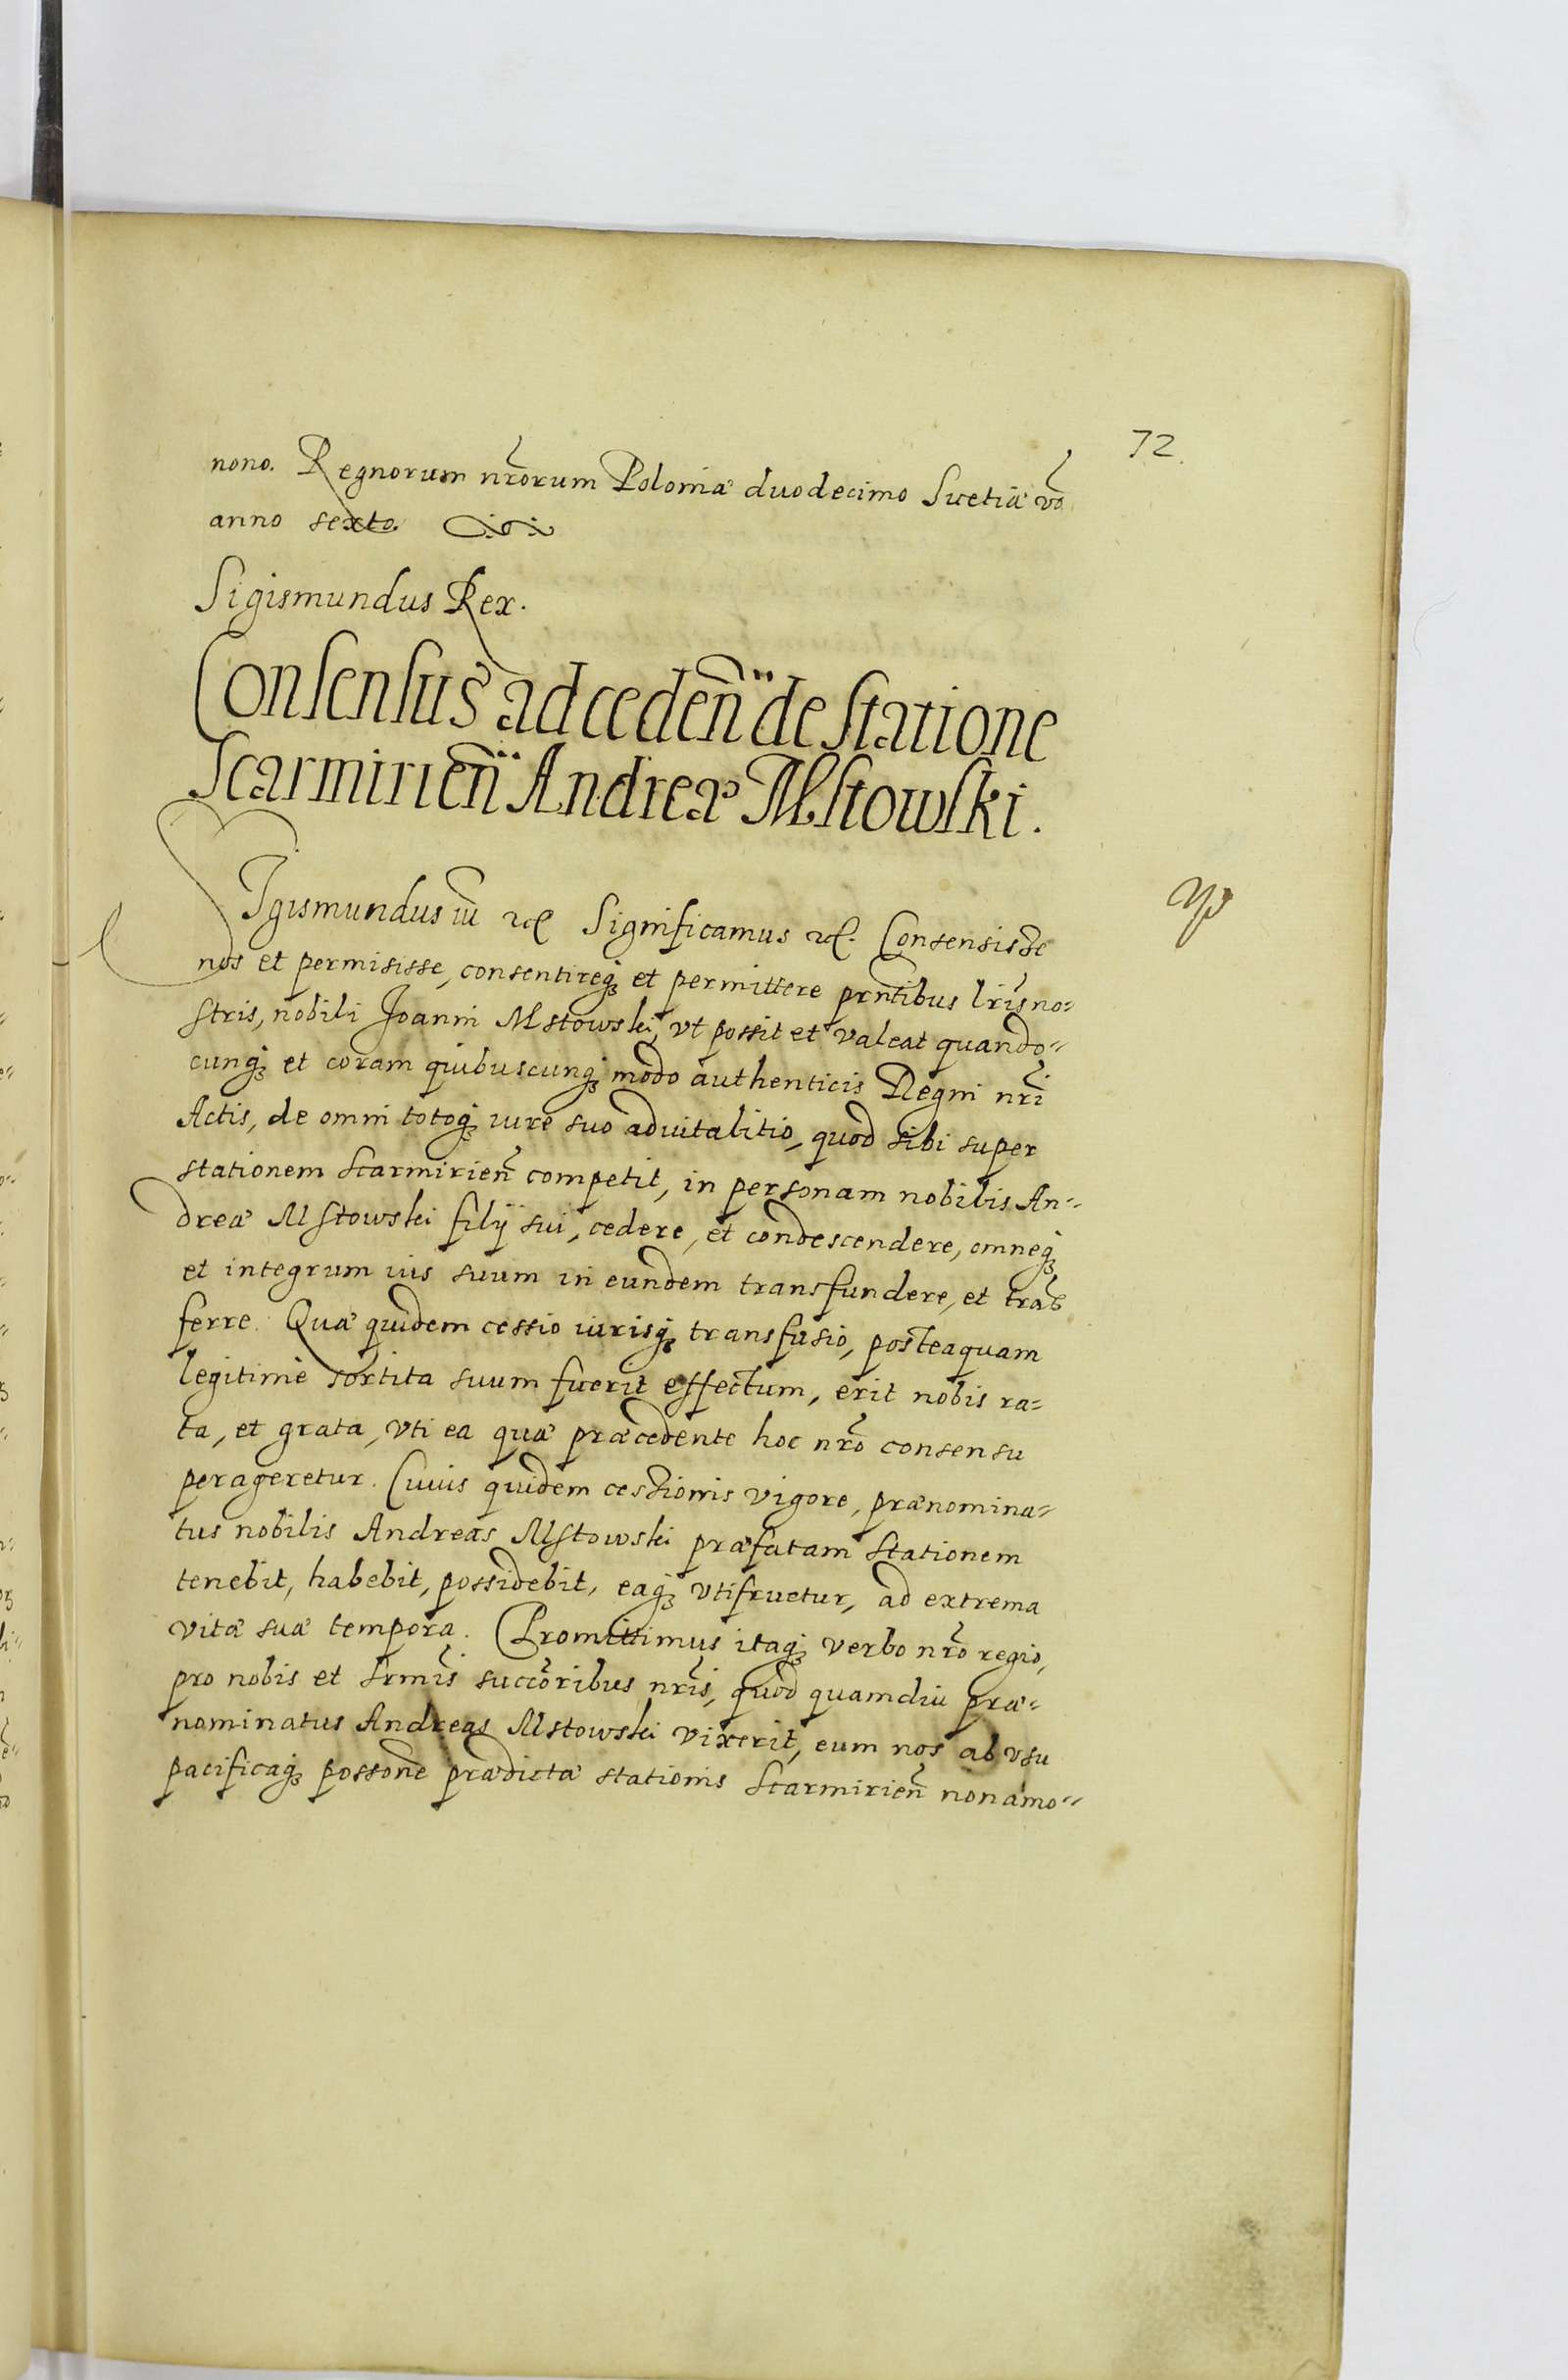 72.
nono. Regnorum nr̃orum Poloniæ duodecimo Suetiæ vo͠
anno sexto.
Sigismundus Rex.
Consensus ad ceden̄ de statione
Scarmirien̄ Andreæ Mstowski.
Sigismundus iii͠ &c. Significamus &c. Consensisse
nos et permisisse, consentireq́ꝫ et permittere prñtibus lr̃is no=
stris, nobili Joanni Mstowski, vt possit et valeat quando=
cunq́ꝫ et coram quibuscunq́ꝫ modo authenticis Regni nr̃i
Actis, de omni totoq́ꝫ iure suo aduitalitio, quod sibi super
stationem Scarmirien̄ competit, in personam nobilis An=
dreæ Mstowski filij sui, cedere, et condescendere, omneq́ꝫ
et integrum ius suum in eundem transfundere, et trãs
ferre. Quæ quidem cessio iurisq́ꝫ transfusio, posteaquam
legitime sortita suum fuerit effectum, erit nobis ra=
ta, et grata, vti ea quæ præcedente hoc nr̃o consensu
perageretur. Cuius quidem cessionis vigore, prænomina=
tus nobilis Andreas Mstowski præfatam stationem
tenebit, habebit, possidebit, eaq́ꝫ vtifruetur, ad extrema
vitæ suæ tempora. Promittimus itaq́ꝫ verbo nr̃o regio,
pro nobis et Srm̃is succõribus nr̃is, quod quamdiu præ=
nominatus Andreas Mstowski vixerit, eum nos ab vsu
pacificaq́ꝫ possone͠ prædictæ stationis Scarmirien̄ non amo=